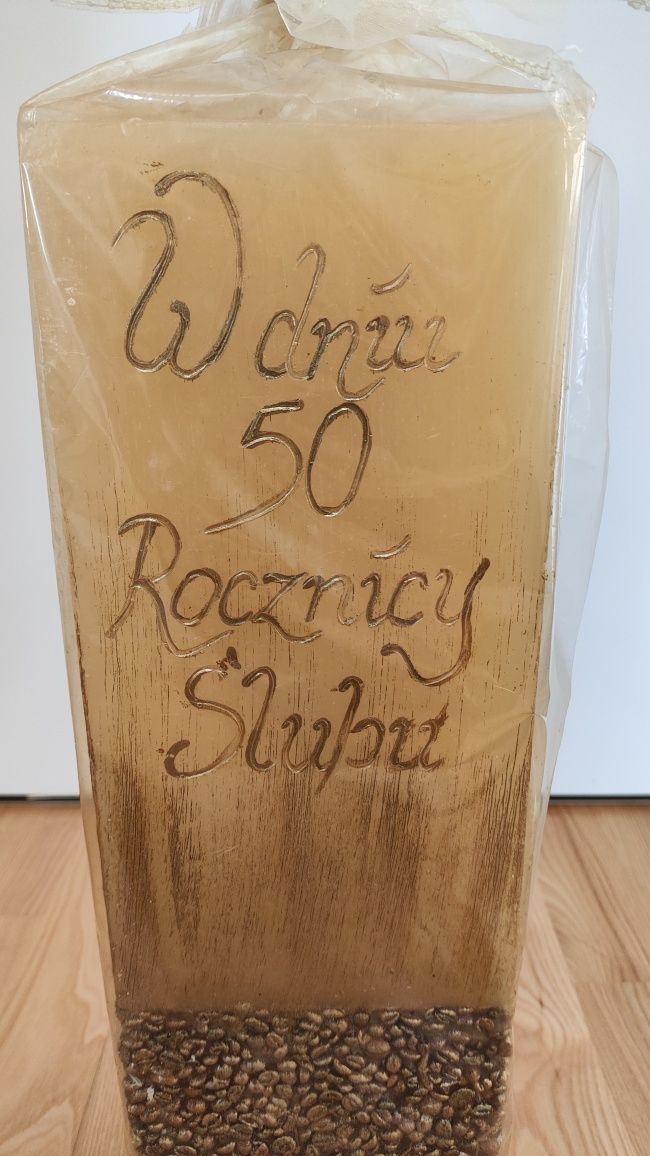 W dniu
50
Rocznicy
Ślubu